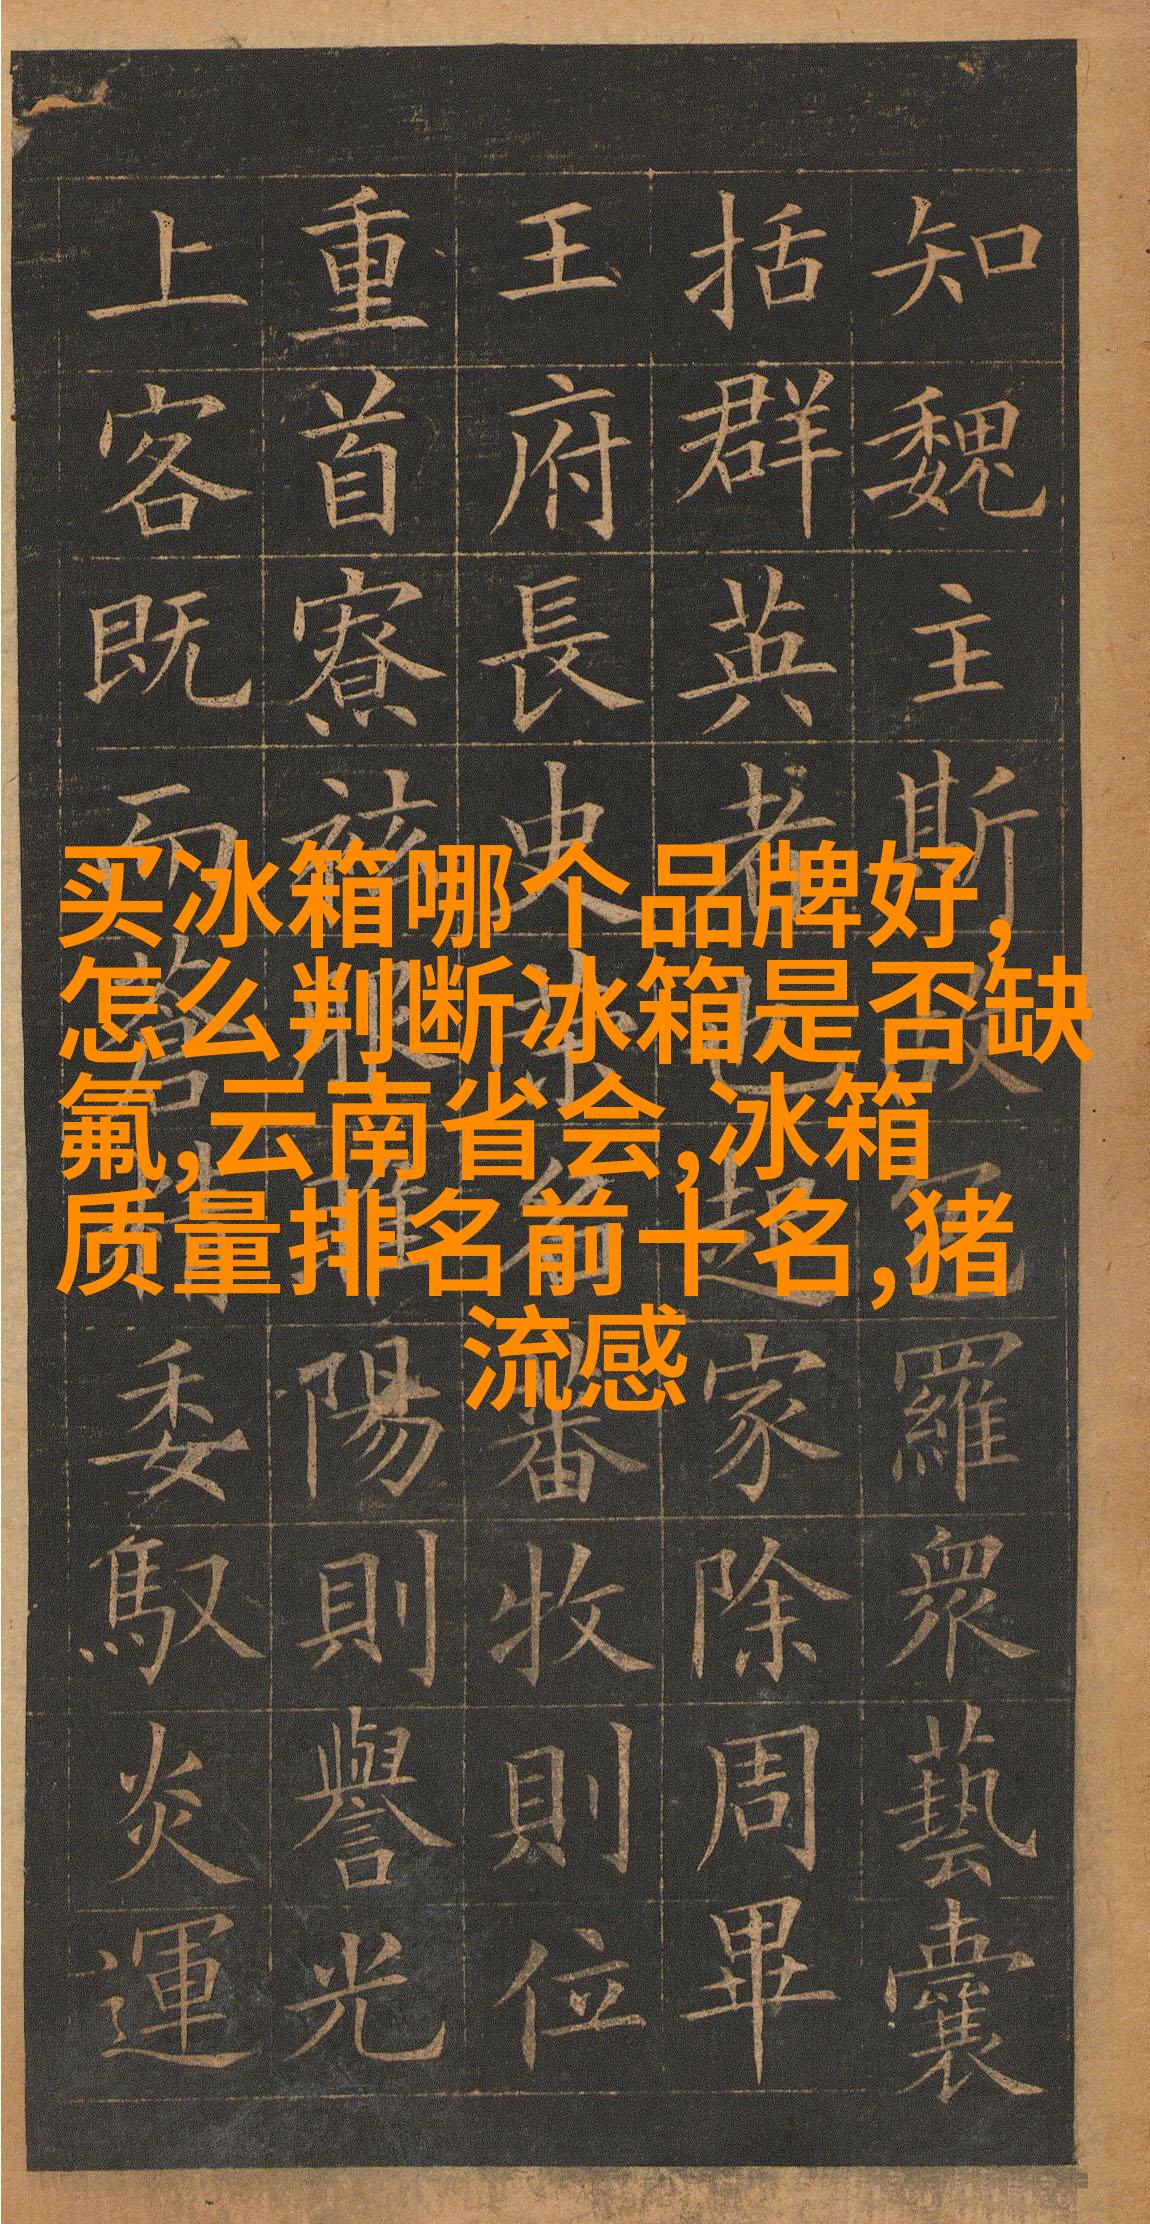 买冰箱哪个品牌好,
怎么判断冰箱是否缺
氟,云南省会,冰箱
质量排名前十名,猪
流感
知魏主斯包羅衆藝囊
括群英者也起家除周畢
王府長史名蕃牧則位
重首寮服陽則譽光
上客既而蒼精委馭炎運